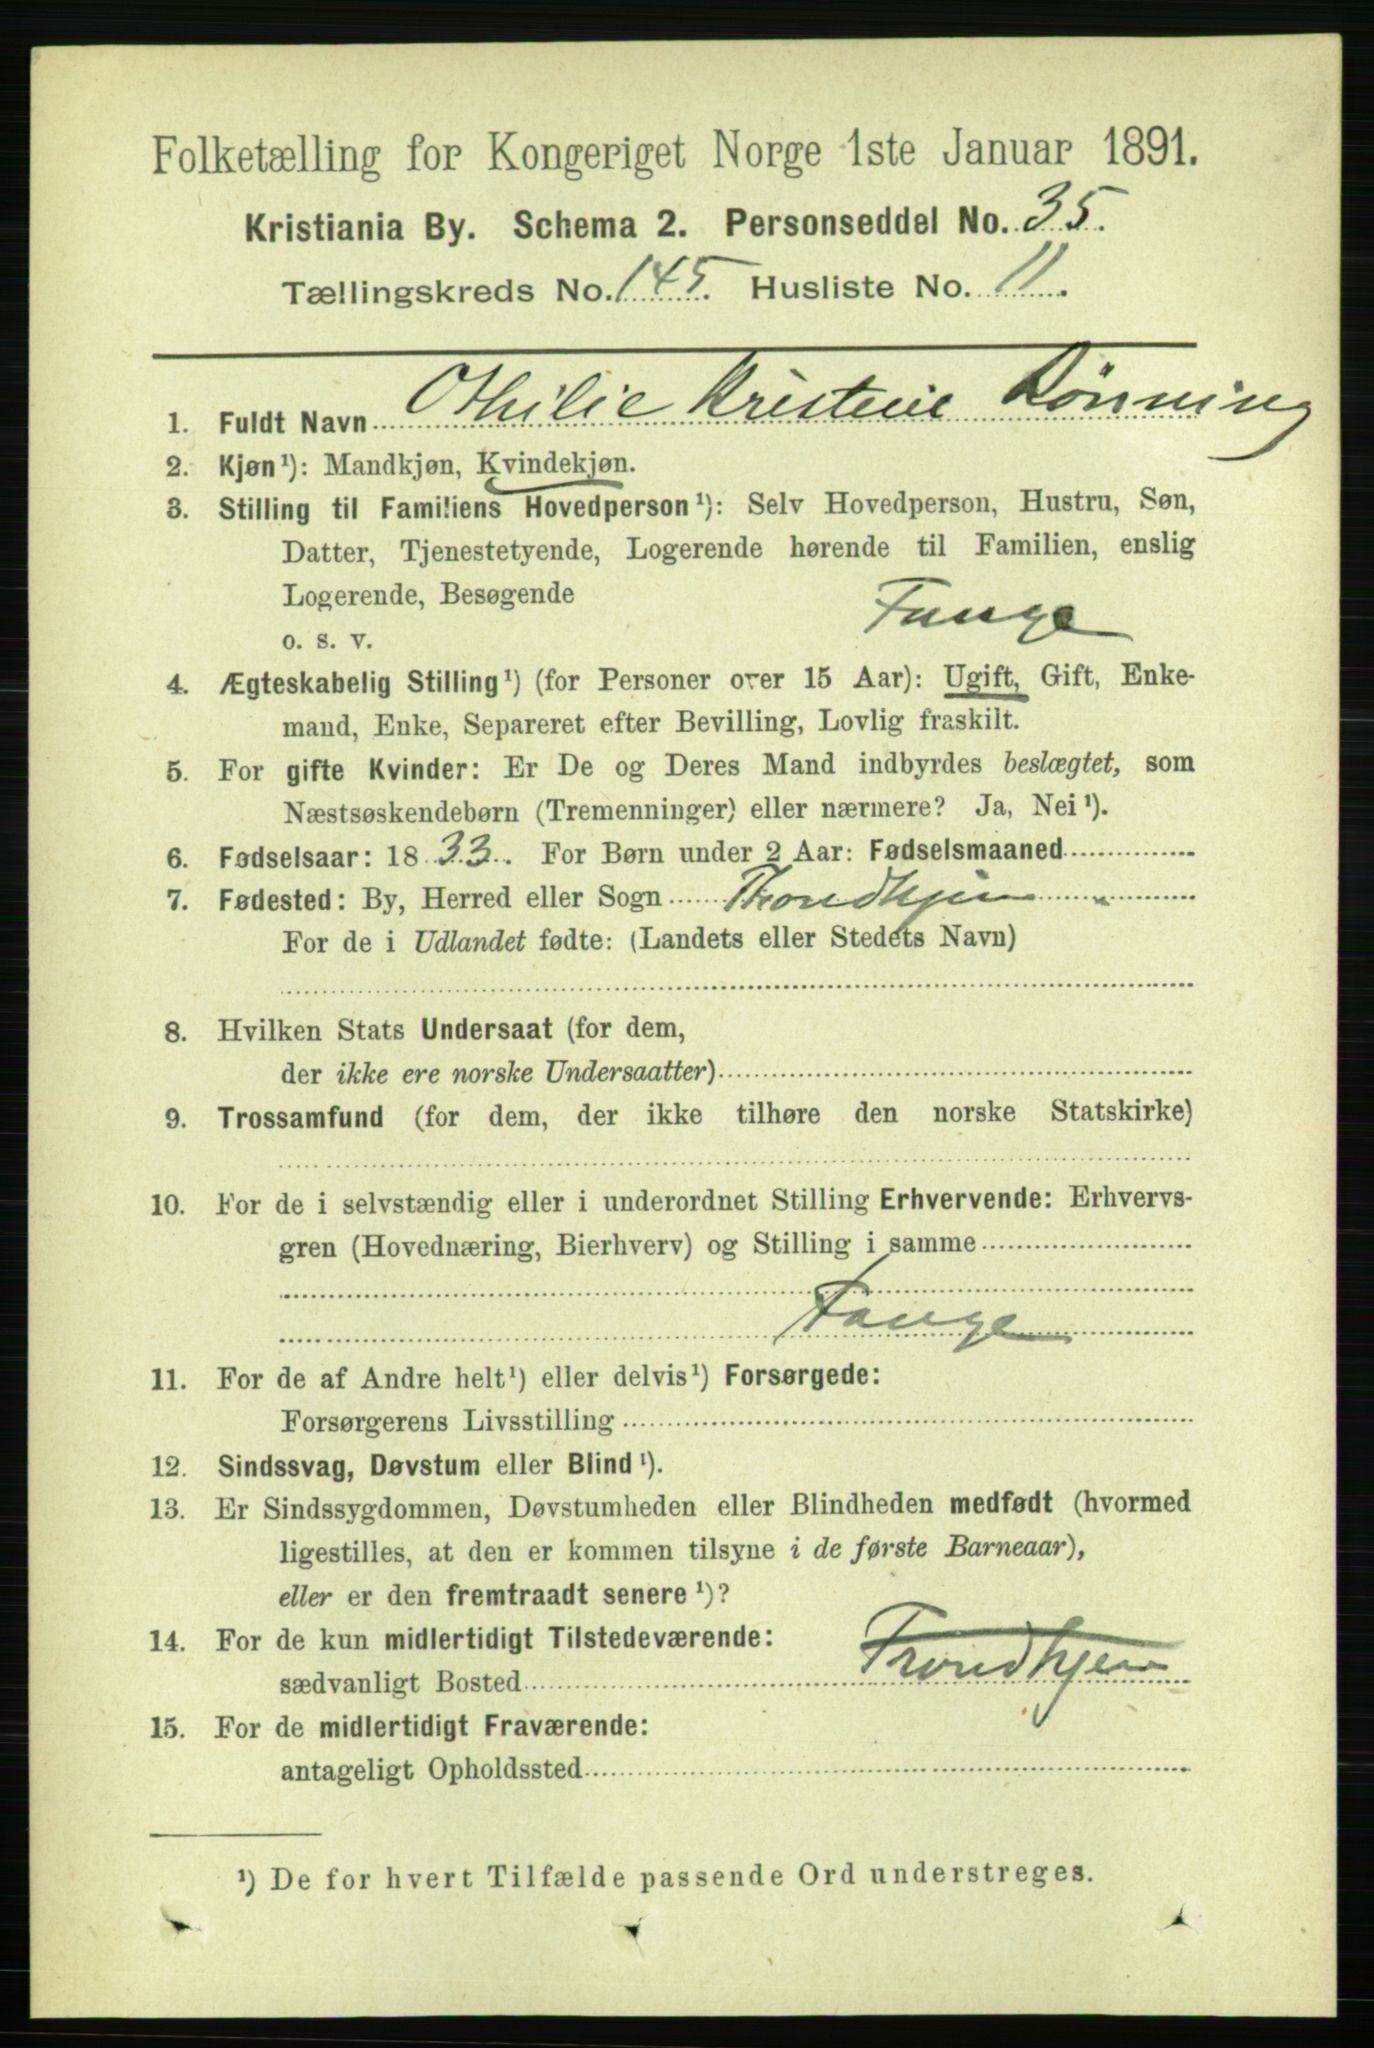 Folketælling for Kongeriget Norge 1ste Januar 1891.
Kristiania By. Schema 2. Personseddel No. 35.
Tællingskreds No. 145. Husliste No. 11.
1. Fuldt Navn Othilie Kristine Rönning
2. Kjøn¹): Mandkjøn, Kvindekjøn.
3. Stilling til Familiens Hovedperson¹): Selv Hovedperson, Hustru, Søn,
Datter, Tjenestetyende, Logerende hørende til Familien, enslig
Logerende, Besøgende
o. s. v. Fange
4. Ægteskabelig Stilling¹) (for Personer over 15 Aar): Ugift, Gift, Enke-
mand, Enke, Separeret efter Bevilling, Lovlig fraskilt.
5. For gifte Kvinder: Er De og Deres Mand indbyrdes beslægtet, som
Næstsøskendebørn (Tremenninger) eller nærmere? Ja, Nei¹).
6. Fødselsaar: 1833. For Børn under 2 Aar: Fødselsmaaned
7. Fødested: By, Herred eller Sogn Throndhjem
For de i Udlandet fødte: (Landets eller Stedets Navn)
8. Hvilken Stats Undersaat (for dem,
der ikke ere norske Undersaatter)
9. Trossamfund (for dem, der ikke tilhøre den norske Statskirke)
10. For de i selvstændig eller i underordnet Stilling Erhvervende: Erhvervs-
gren (Hovednæring, Bierhverv) og Stilling i samme
Fange
11. For de af Andre helt¹) eller delvis¹) Forsørgede:
Forsørgerens Livsstilling
12. Sindssvag, Døvstum eller Blind¹).
13. Er Sindssygdommen, Døvstumheden eller Blindheden medfødt (hvormed
ligestilles, at den er kommen tilsyne i de første Barneaar),
eller er den fremtraadt senere¹)?
14. For de kun midlertidigt Tilstedeværende:
sædvanligt Bosted Trondhjem
15. For de midlertidigt Fraværende:
antageligt Opholdssted
¹) De for hvert Tilfælde passende Ord understreges.